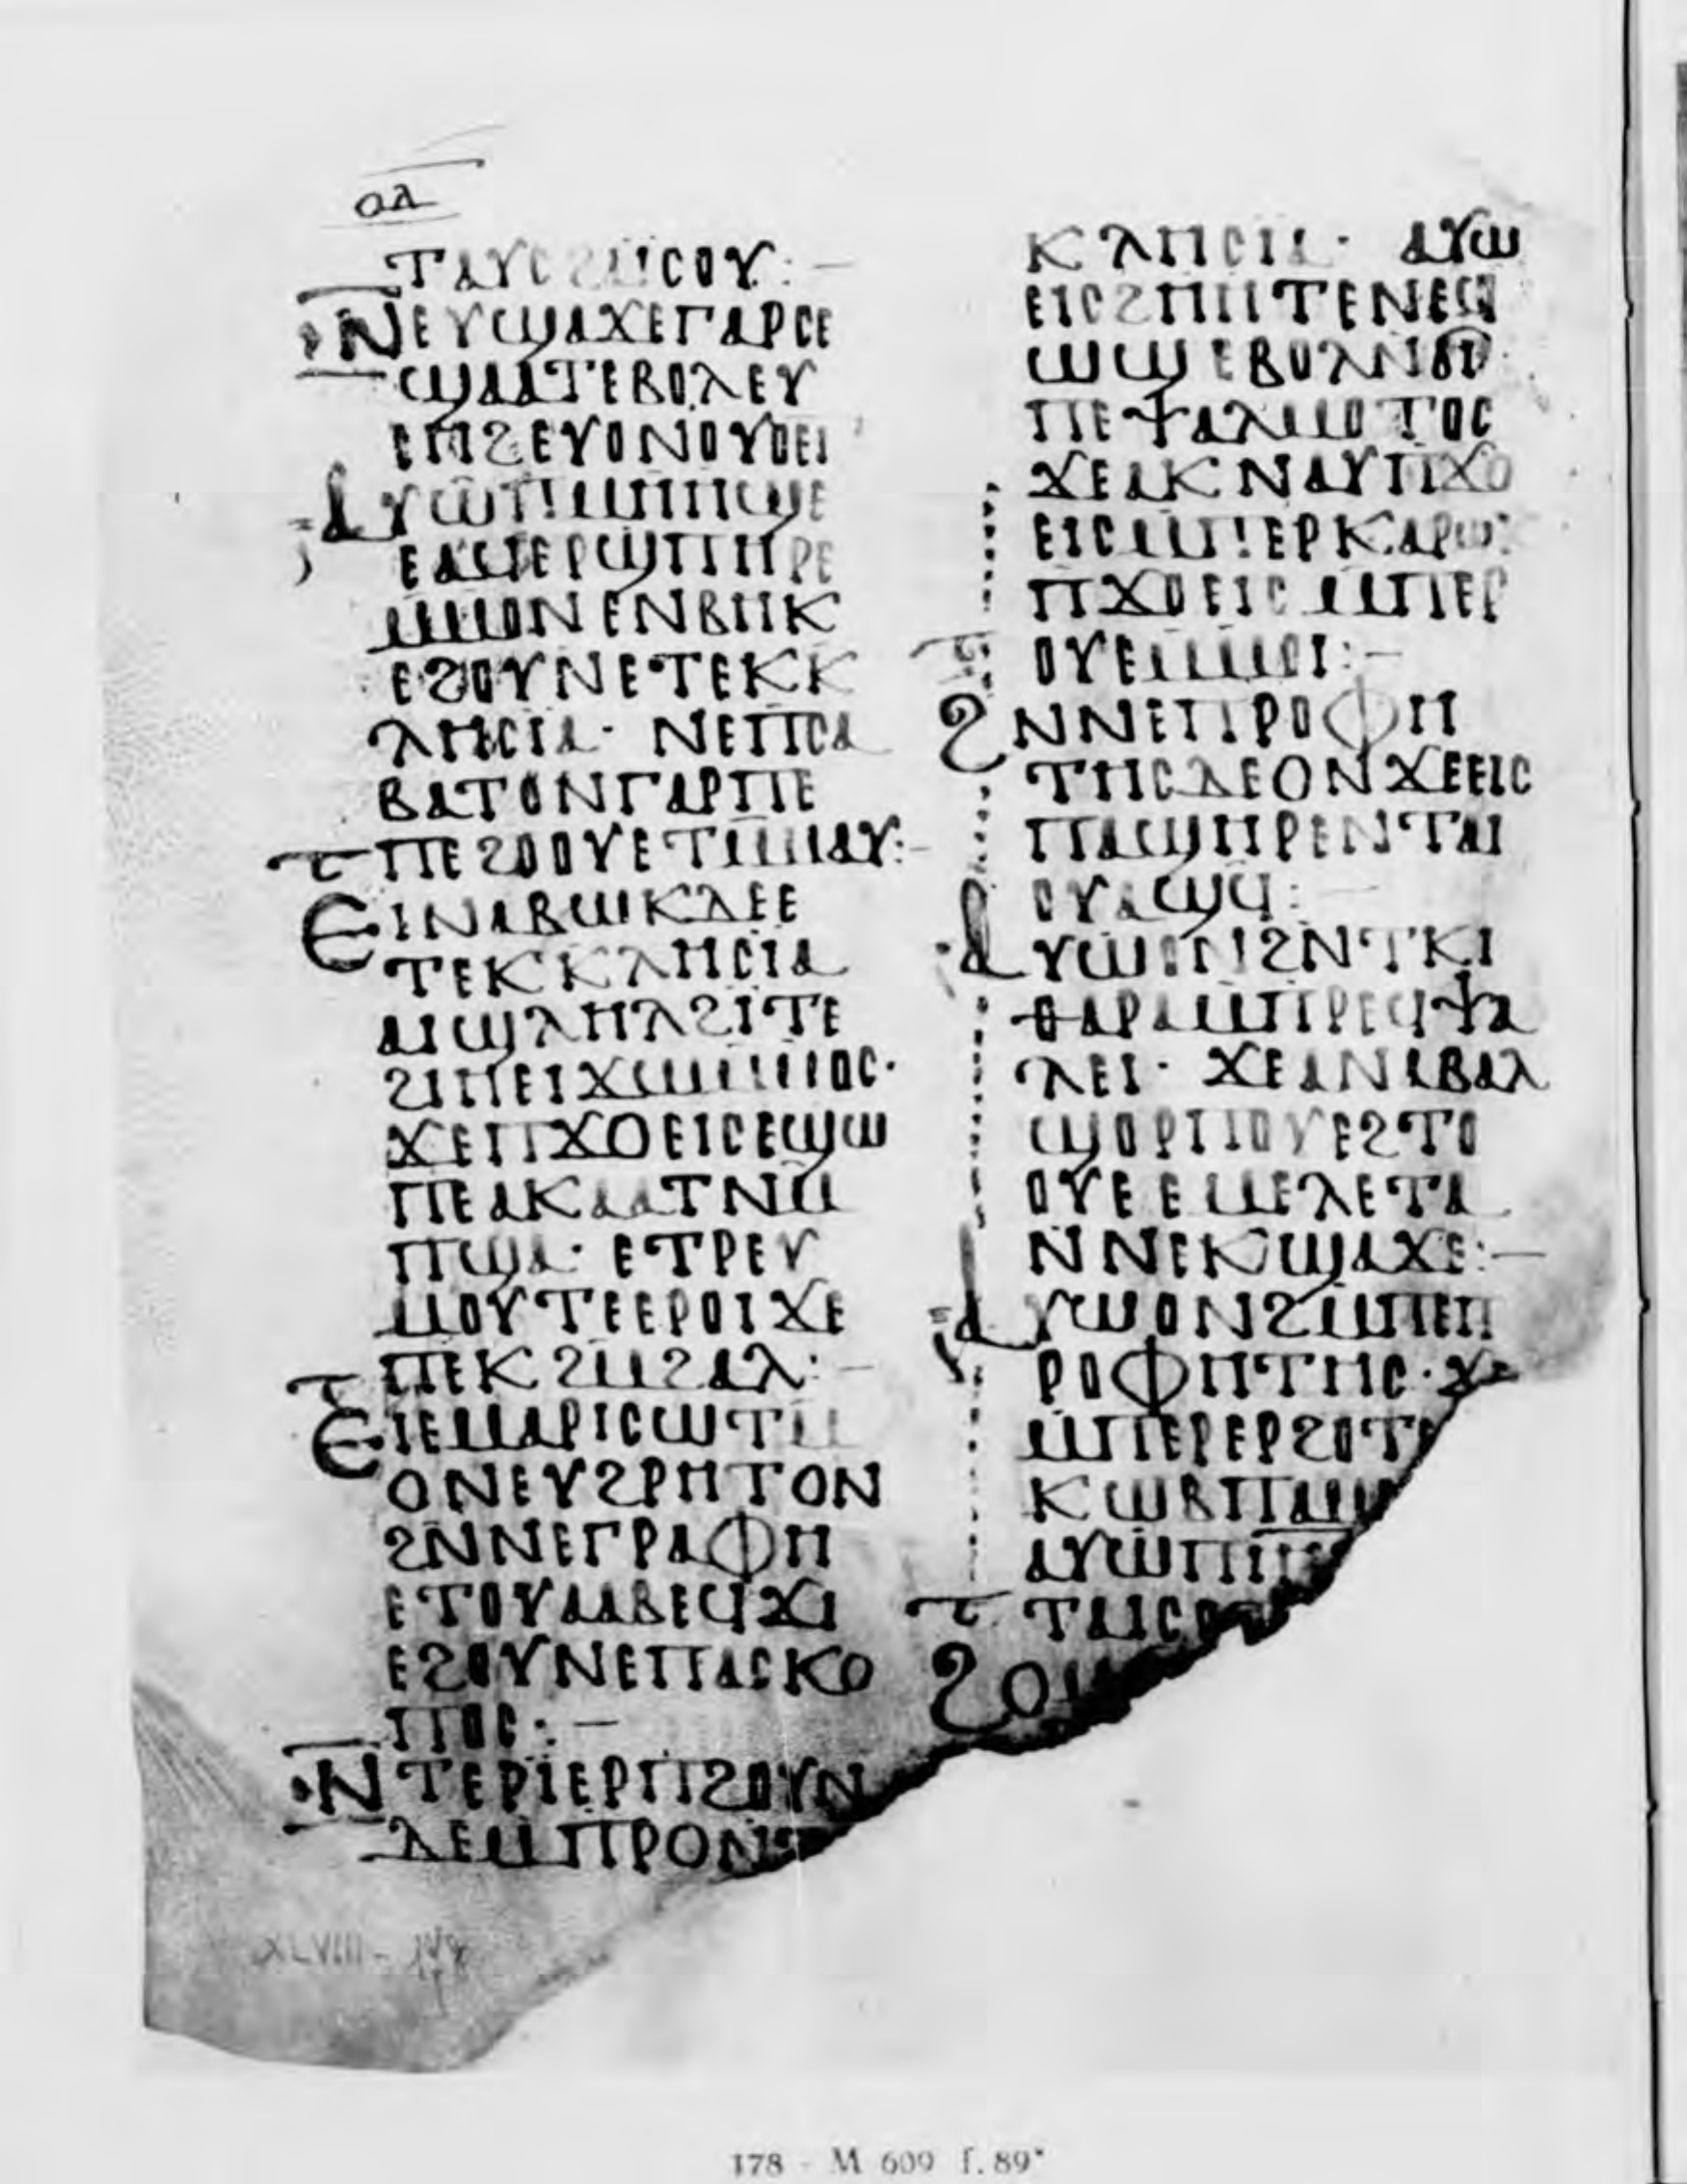 ⲟⲇ
ⲧⲁⲩⲥϩⲁⲓⲥⲟⲩ:—
ⲛⲉⲩϣⲁϫⲉⲅⲁⲣⲥⲉ
ϣⲁⲁⲧⲉⲃⲟⲗⲉⲩ
ⲙⲏϩⲉⲩⲟⲛⲟⲩⲟⲉⲓ
ⲁⲩⲱⲡⲙⲏⲏϣⲉ
ⲉⲁϥⲉⲣϣⲡⲏⲣⲉ
ⲙⲙⲟⲛⲉⲛⲃⲏⲕ
ⲉϩⲟⲩⲛⲉⲧⲉⲕⲕ
ⲗⲏⲥⲓⲁ· ⲛⲉⲡⲥⲁ
ⲃⲁⲧⲟⲛⲅⲁⲣⲡⲉ
ⲡⲉϩⲟⲟⲩⲉⲧⲙⲙⲁⲩ:—
ⲉⲓⲛⲁⲃⲱⲕⲇⲉⲉ
ⲧⲉⲕⲕⲗⲏⲥⲓⲁ
ⲁⲓϣⲗⲏⲗϩⲓⲧⲉ
ϩⲓⲏⲉⲓϫⲱⲙⲙⲟⲥ·
ϫⲉⲡϫⲟⲉⲓⲥⲉϣⲱ
ⲡⲉⲁⲕⲁⲁⲧⲛⲙ
ⲡϣⲁ· ⲉⲧⲣⲉⲩ
ⲙⲟⲩⲧⲉⲉⲣⲟⲓϫⲉ
ⲡⲉⲕϩⲙϩⲁⲗ:—
ⲉⲓⲉⲙⲁⲣⲓⲥⲱⲧⲙ
ⲟⲛⲉⲩϩⲣⲏⲧⲟⲛ
ϩⲛⲛⲉⲅⲣⲁⲫⲏ
ⲉⲧⲟⲩⲁⲁⲃⲉϥϫⲓ
ⲉϩⲟⲩⲛⲉⲡⲁⲥⲕⲟ
ⲡⲟⲥ:—
ⲛⲧⲉⲣⲓⲉⲣⲡϩⲟⲩⲛ
ⲇⲉⲙⲡⲣⲟⲛ
ⲕⲗⲏⲥⲓⲁ· ⲁⲩⲱ
ⲉⲓⲥϩⲏⲏⲧⲉⲛⲉϥ
ⲱϣⲉⲃⲟⲗⲛϭⲓ
ⲡⲉⲯⲁⲗⲙⲟⲧⲟⲥ
ϫⲉⲁⲕⲛⲁⲩⲡϫⲟ
ⲉⲓⲥⲙⲡⲉⲣⲕⲁⲣⲱ
ⲡϫⲟⲉⲓⲥⲙⲡⲉⲣ
ⲟⲩⲉⲙⲙⲟⲓ:—
ϩⲛⲛⲉⲡⲣⲟⲫⲏ
ⲧⲏⲥⲇⲉⲟⲛϫⲉⲉⲓⲥ
ⲡⲁϣⲏⲣⲉⲛⲧⲁⲓ
ⲟⲩⲁϣϥ:—
ⲁⲩⲱⲟⲛϩⲛⲧⲕⲓ
ⲑⲁⲣⲁⲙⲡⲣⲉϥⲯⲁ
ⲗⲉⲓ· ϫⲉⲁⲛⲁⲃⲁⲗ
ϣⲟⲣⲡⲟⲩⲉϩⲧⲟ
ⲟⲩⲉⲉⲙⲉⲗⲉⲧⲁ
ⲛⲛⲉⲕϣⲁϫⲉ:—
ⲁⲩⲱⲟⲛϩⲙⲡⲉⲡ
ⲣⲟⲫⲏⲧⲏⲥ·ϫⲉ
ⲙⲡⲉⲣⲉⲣϩⲟⲧⲉ
ⲕⲱⲃⲡⲁ
ⲁⲩⲱⲡ
ⲧⲁⲓⲥ
ϩⲟ
XLVIII -
178 - M 609 f. 89ᵛ